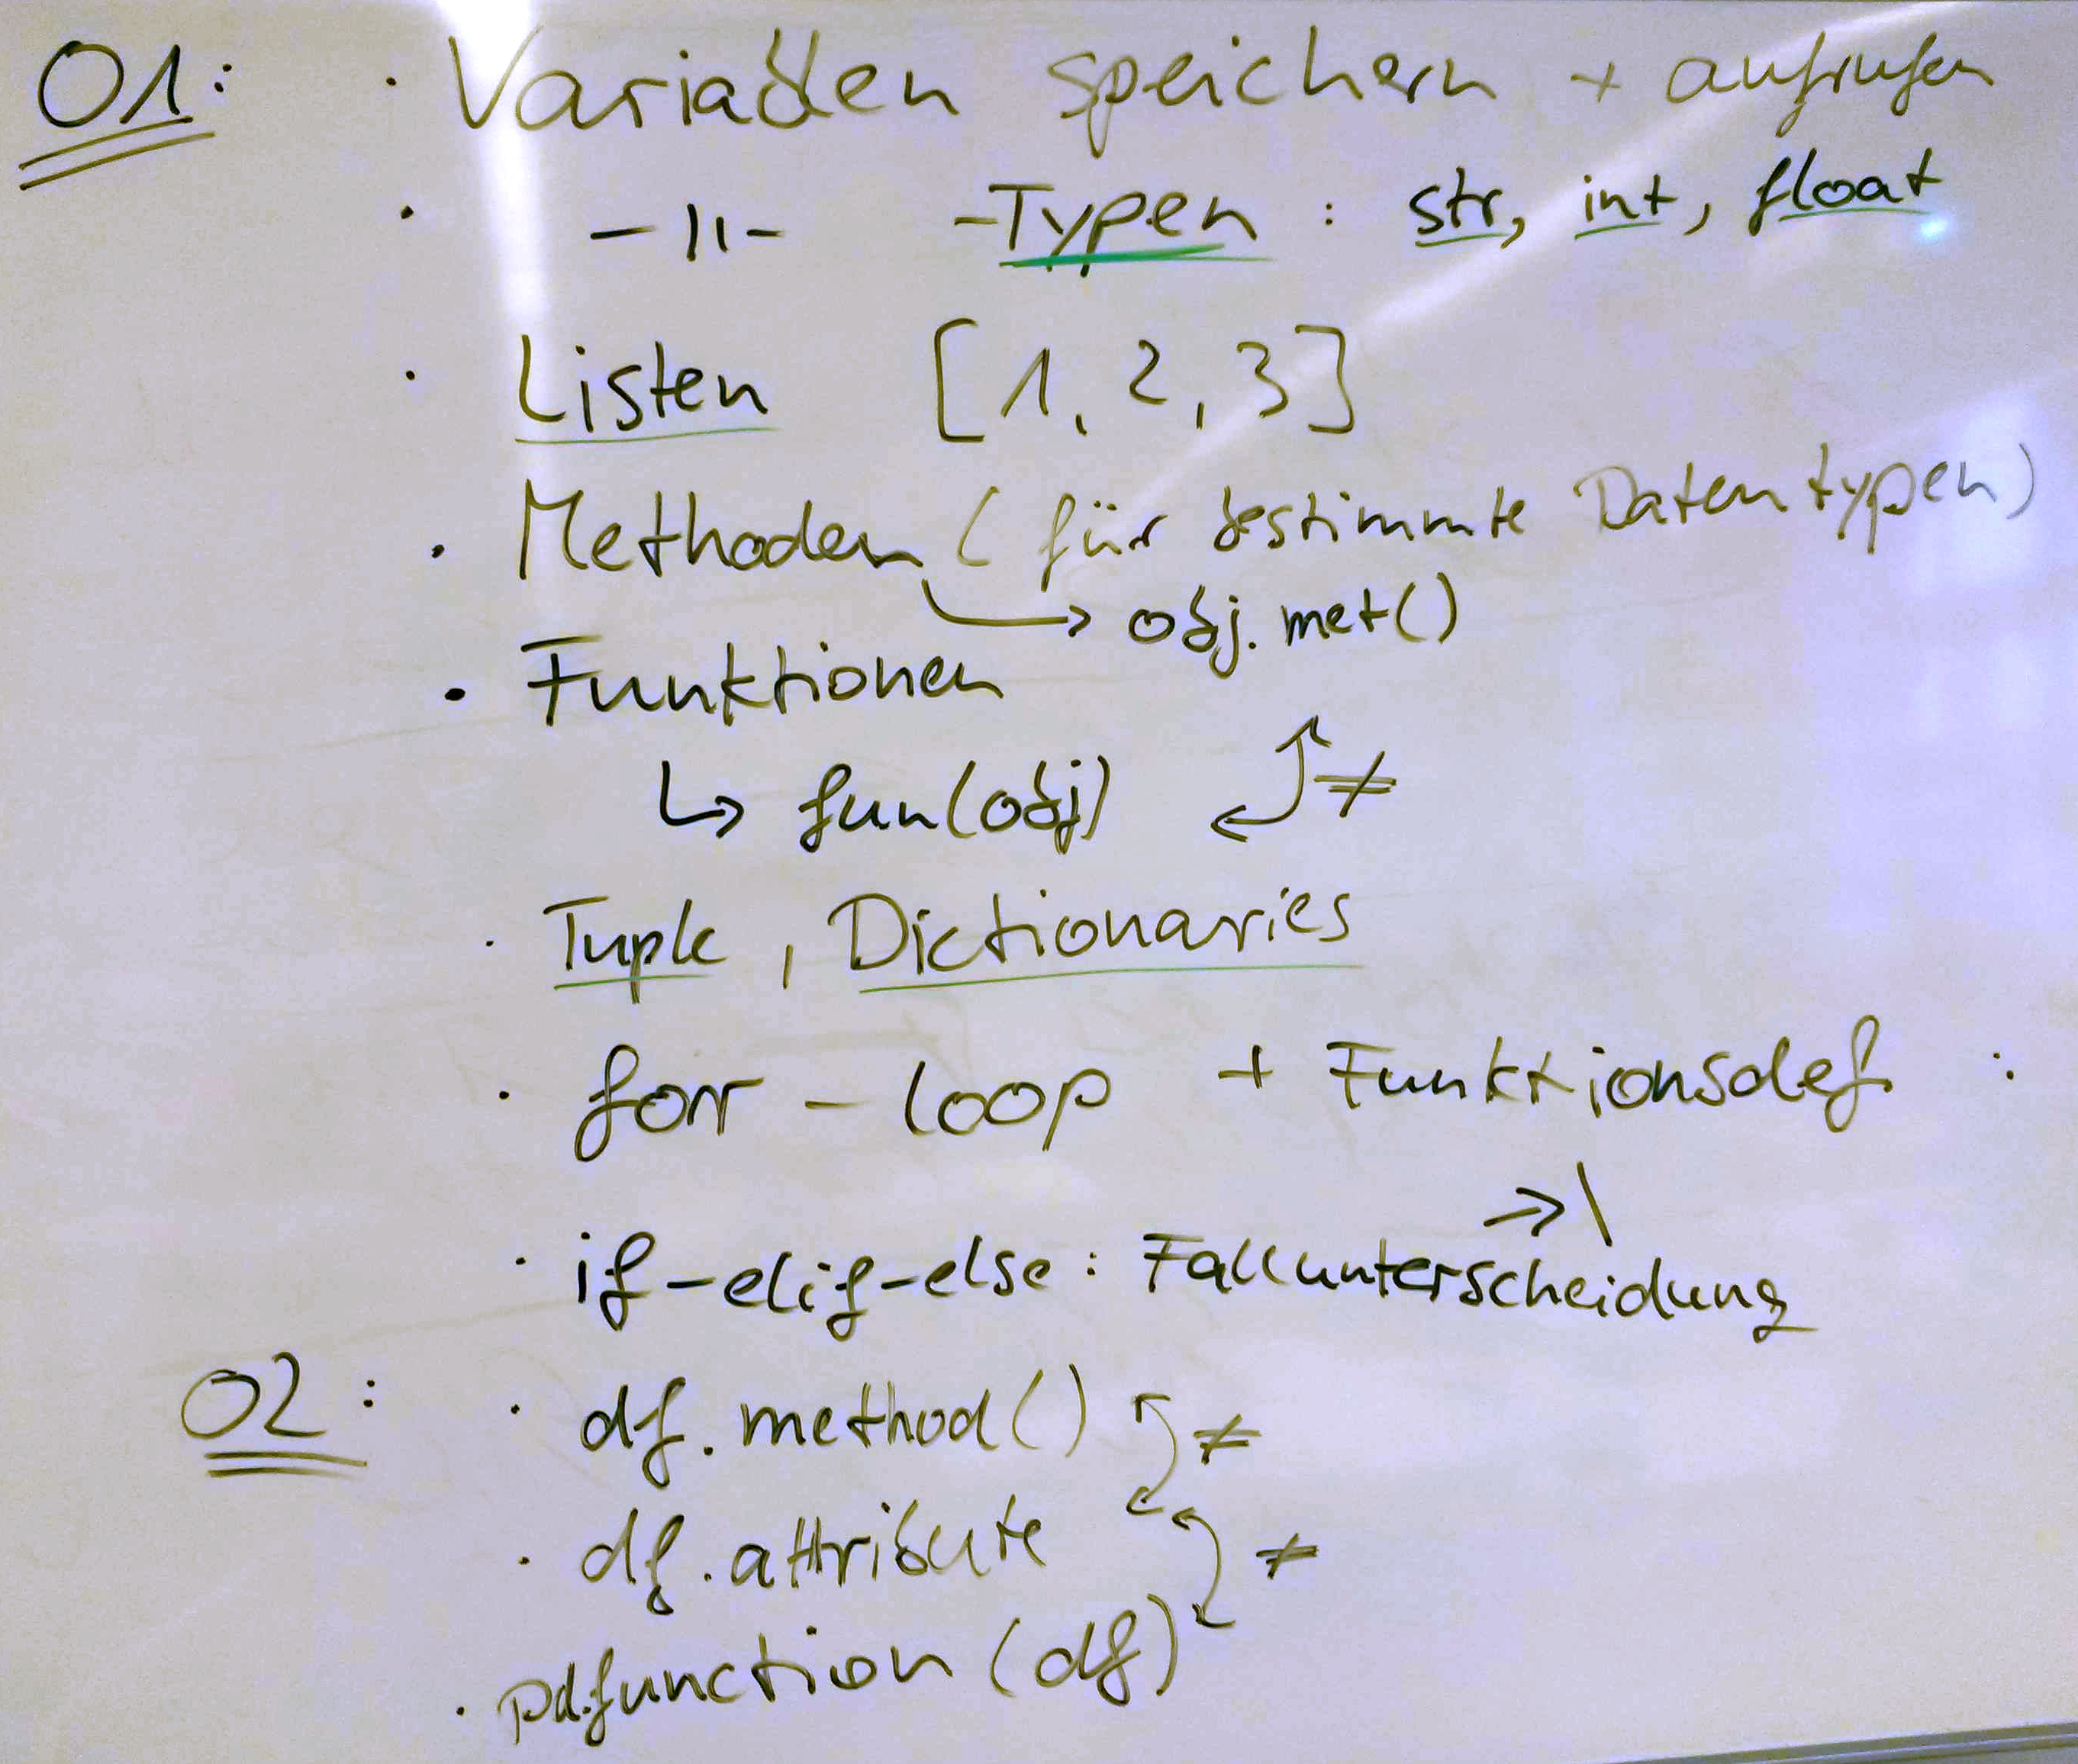 01: · Variablen speichern + aufrufen
· -11- -Typen : str, int, float
· Listen [1, 2, 3]
· Methoden (für bestimmte Datentypen)
→ obj.met()
· Funktionen
↳ fun(obj) ≠
· Tuple, Dictionaries
· for - loop + Funktionsdef. :
⇒ \
· if-elif-else: Fallunterscheidung
02: · df.method() ≠
· df.attribute ≠
· pd.function(df)